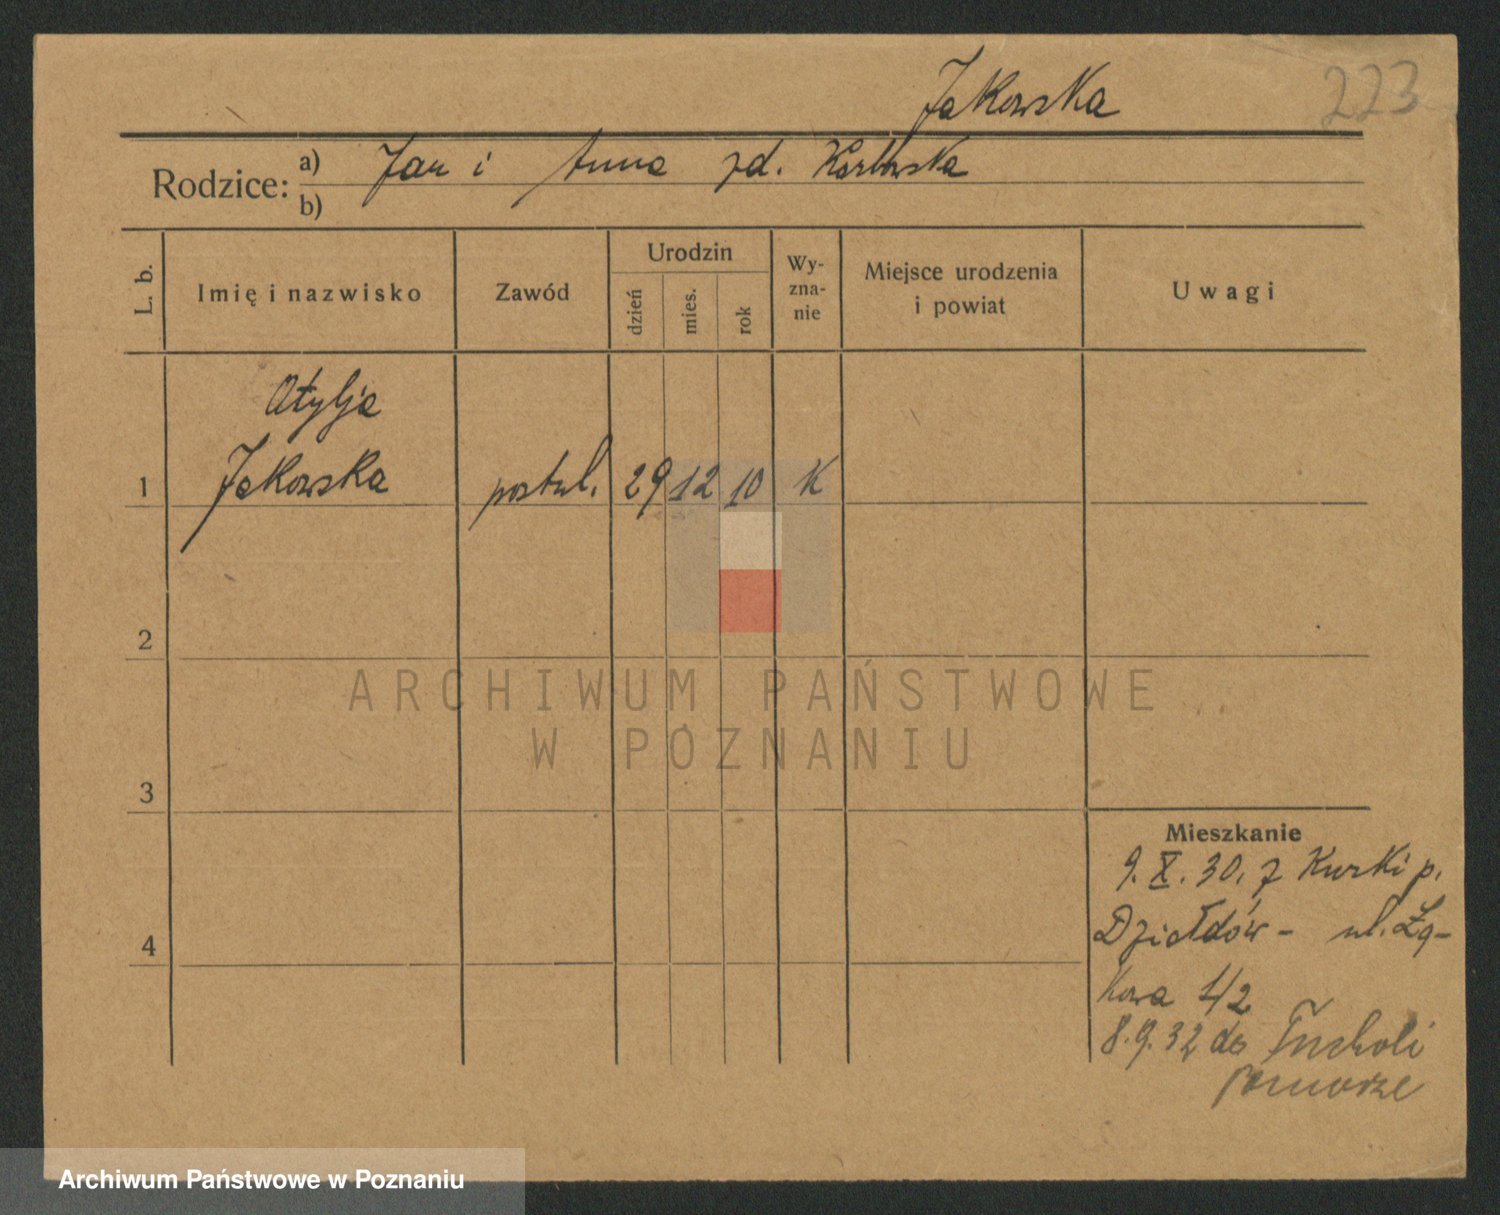 Jakowska
223
Rodzice: a) Jan i Anna zd. Karłowska
b)
L. b. Imię i nazwisko Zawód Urodzin dzień mies. rok Wy-zna-nie Miejsce urodzenia i powiat Uwagi
Otylja
1 Jakowska postul. 29 12 10 K
2
ARCHIWUM PAŃSTWOWE
W POZNANIU
3
Mieszkanie
9. X. 30. z Kurki p.
Działdów- ul. Łą-
4
kowa 1/2
8.9.32 do Tucholi
Pomorze
Archiwum Państwowe w Poznaniu